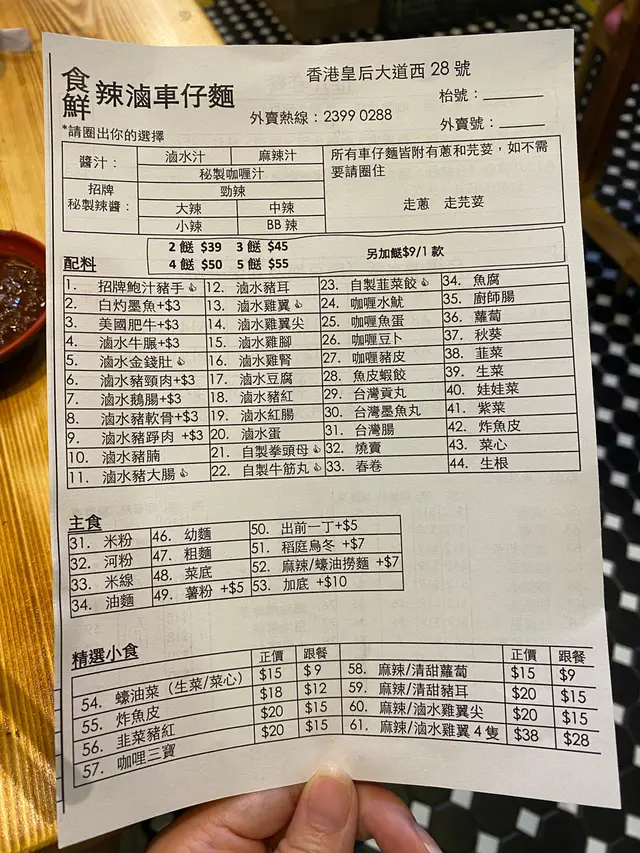 食鮮 辣滷車仔麵
香港皇后大道西 28 號
枱號：
外賣熱線：2399 0288
外賣號：
*請圈出你的選擇
醬汁： 滷水汁 麻辣汁
秘製咖喱汁
招牌秘製辣醬： 勁辣
大辣 中辣
小辣 BB 辣
所有車仔麵皆附有蔥和芫荽，如不需
要請圈住
走蔥 走芫荽
2 餸 $39 3 餸 $45
4 餸 $50 5 餸 $55
另加餸$9/1 款
配料
1. 招牌鮑汁豬手 12. 滷水豬耳 23. 自製韮菜餃 34. 魚腐
2. 白灼墨魚+$3 13. 滷水雞翼 24. 咖喱水魷 35. 廚師腸
3. 美國肥牛+$3 14. 滷水雞翼尖 25. 咖喱魚蛋 36. 蘿蔔
4. 滷水牛脤+$3 15. 滷水雞腳 26. 咖喱豆卜 37. 秋葵
5. 滷水金錢肚 16. 滷水雞腎 27. 咖喱豬皮 38. 韮菜
6. 滷水豬頸肉+$3 17. 滷水豆腐 28. 魚皮蝦餃 39. 生菜
7. 滷水鵝腸+$3 18. 滷水豬紅 29. 台灣貢丸 40. 娃娃菜
8. 滷水豬軟骨+$3 19. 滷水紅腸 30. 台灣墨魚丸 41. 紫菜
9. 滷水豬踭肉 +$3 20. 滷水蛋 31. 台灣腸 42. 炸魚皮
10. 滷水豬腩 21. 自製拳頭母 32. 燒賣 43. 菜心
11. 滷水豬大腸 22. 自製牛筋丸 33. 春卷 44. 生根
主食
31. 米粉 46. 幼麵 50. 出前一丁+$5
32. 河粉 47. 粗麵 51. 稻庭烏冬 +$7
33. 米線 48. 菜底 52. 麻辣/蠔油撈麵 +$7
34. 油麵 49. 薯粉 +$5 53. 加底 +$10
精選小食
正價 跟餐 正價 跟餐
54. 蠔油菜（生菜/菜心） $15 $9 58. 麻辣/清甜蘿蔔 $15 $9
55. 炸魚皮 $18 $12 59. 麻辣/清甜豬耳 $20 $15
56. 韮菜豬紅 $20 $15 60. 麻辣/滷水雞翼尖 $20 $15
57. 咖哩三寶 $20 $15 61. 麻辣/滷水雞翼 4 隻 $38 $28